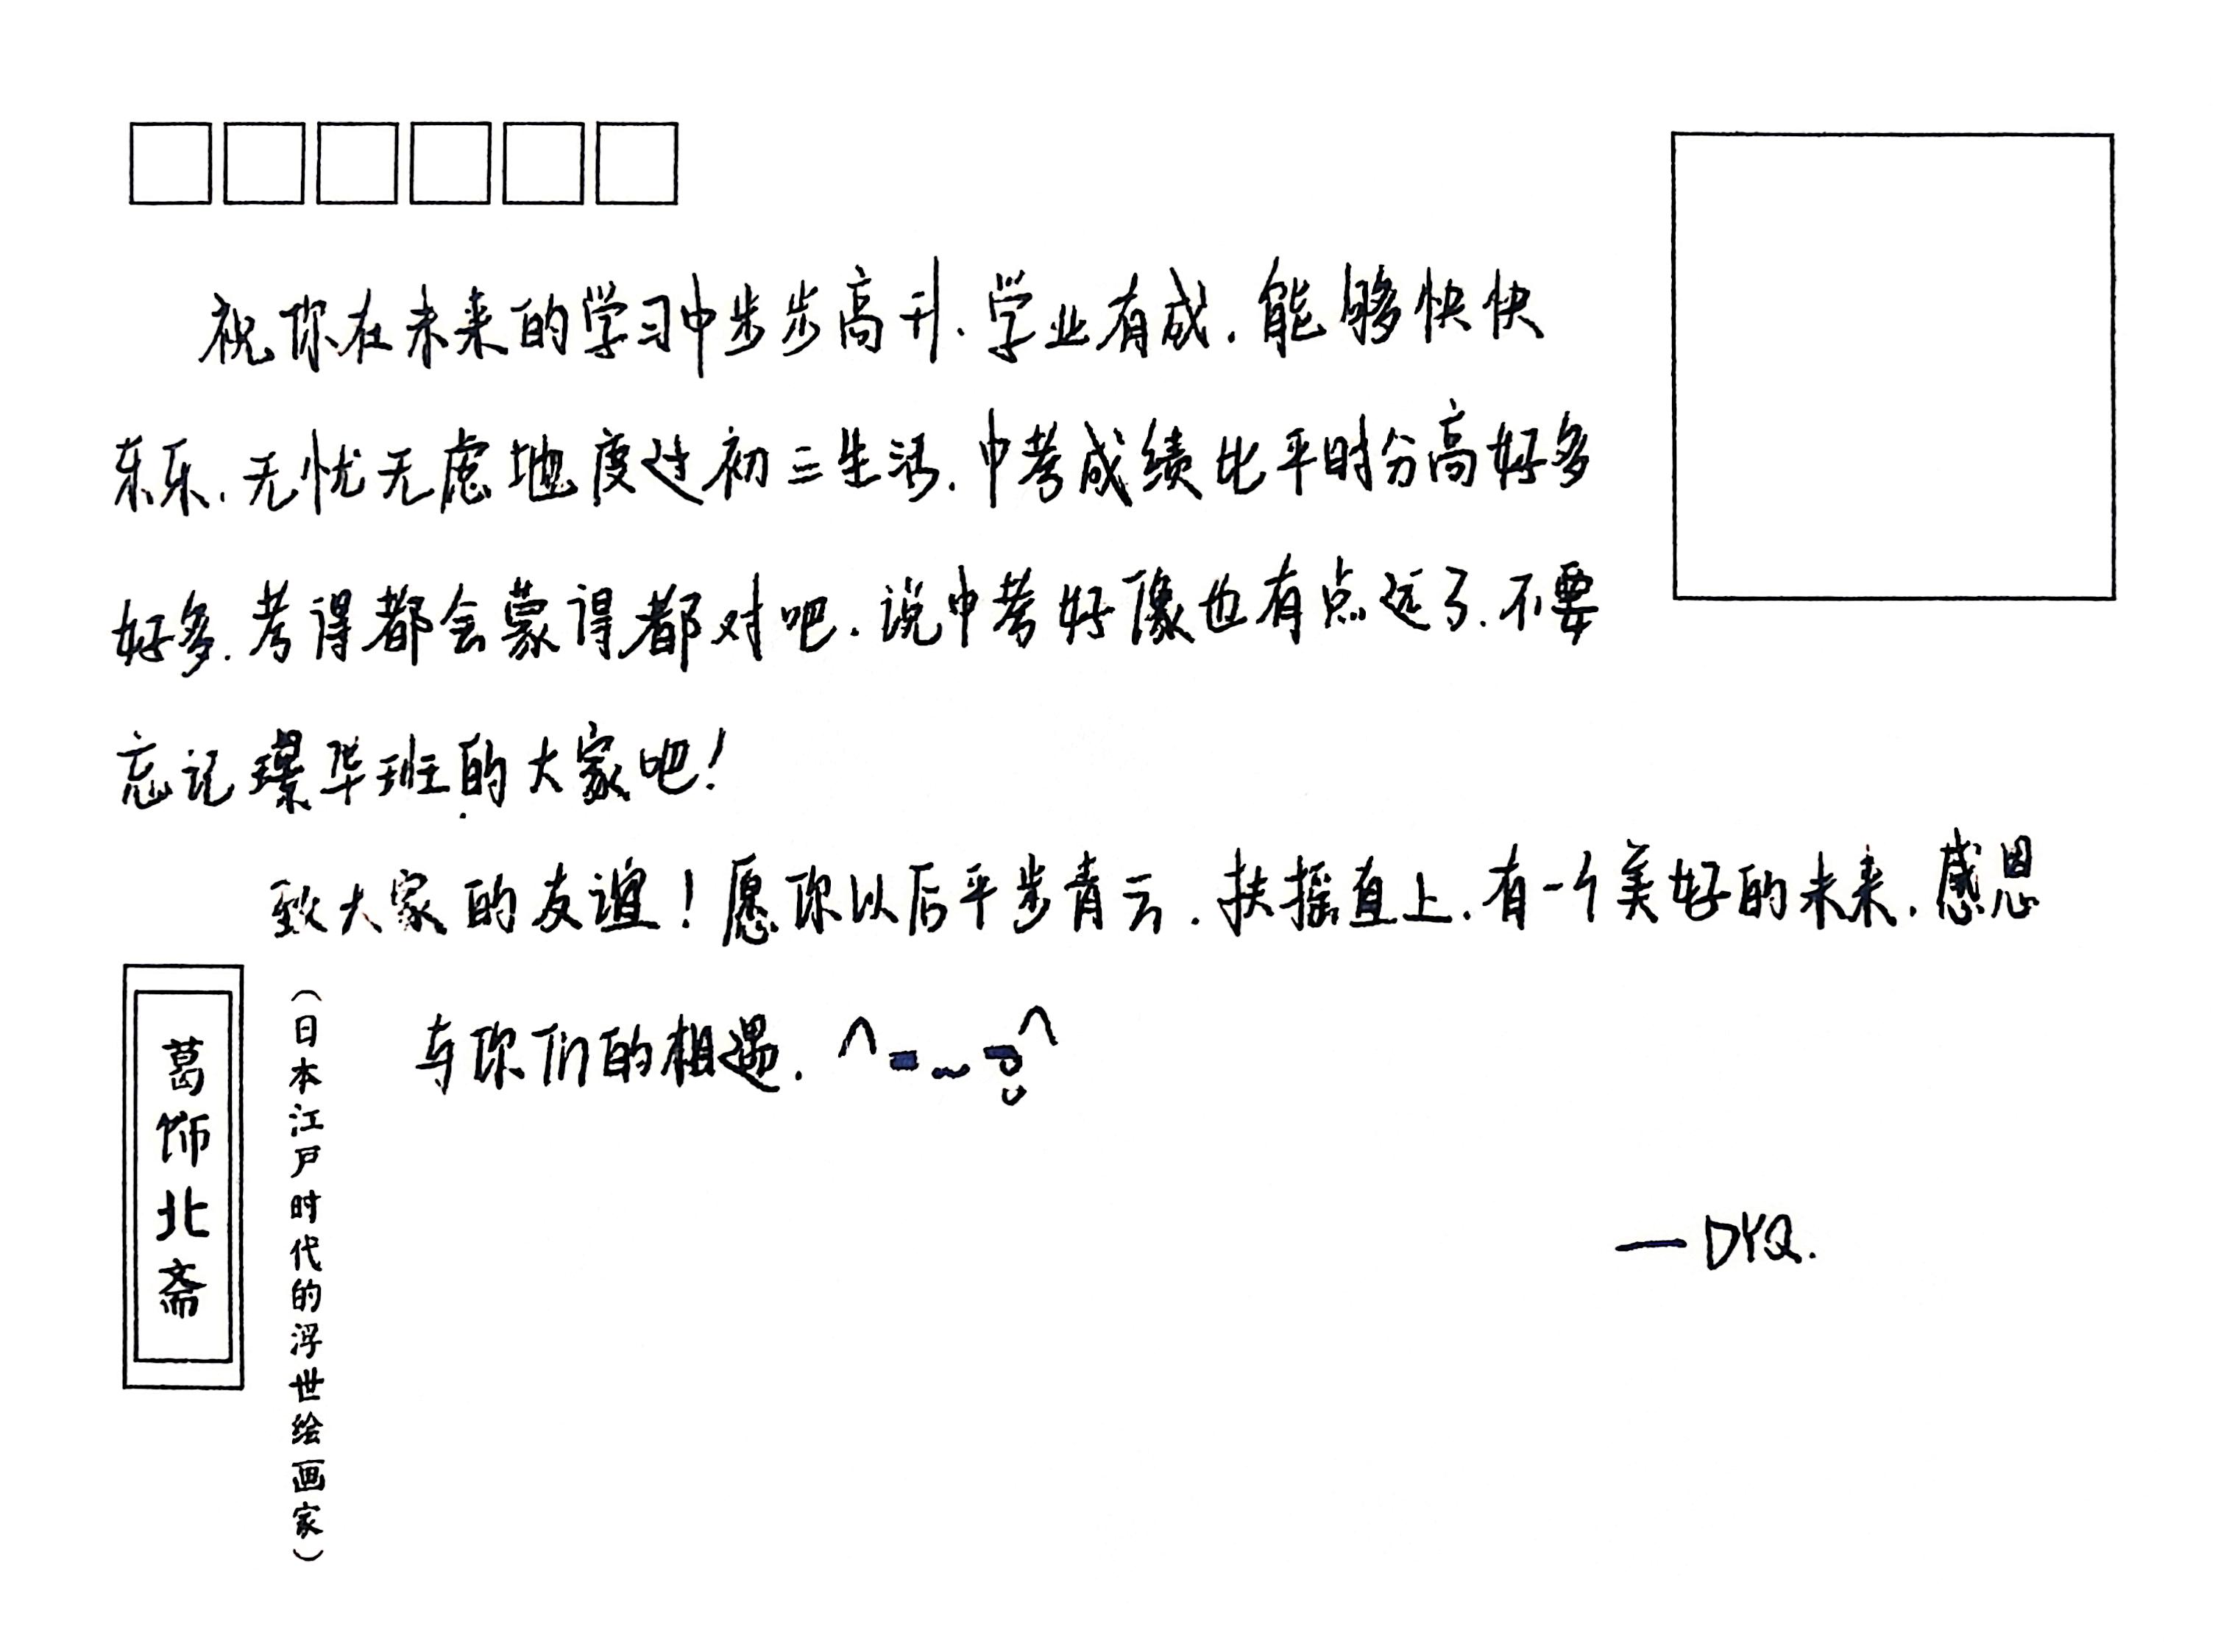 祝你在未来的学习中步步高升、学业有成.能够快快
乐乐、无忧无虑地度过初三生活.中考成绩比平时分高好多
好多.考得都会蒙得都对吧.说中考好像也有点远了.不要
忘记璟华班的大家吧!
致大家的友谊!愿你以后平步青云.扶摇直上.有一个美好的未来.感恩
与你们的相遇.
—DYQ.
葛饰北斋
(日本江户时代的浮世绘画家)